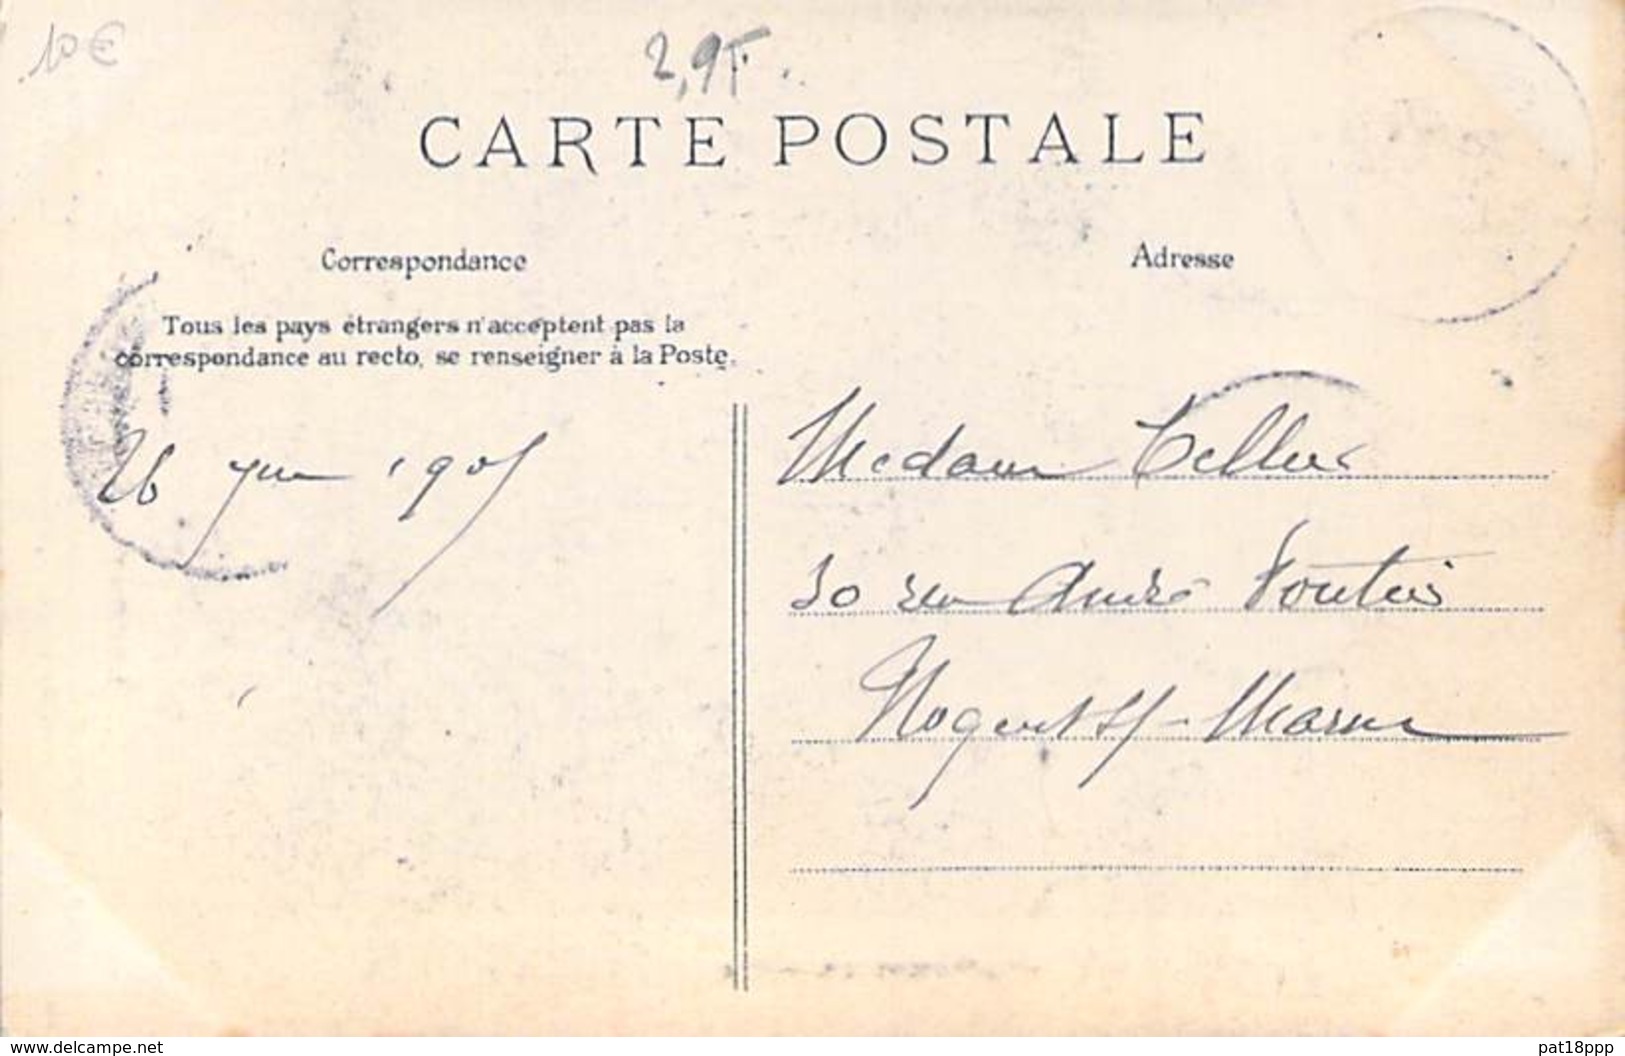 10€
2,9F.
CARTE POSTALE
Correspondance
Adresse
Tous les pays étrangers n'acceptent pas la
correspondance au recto, se renseigner à la Poste.
26 juin 1905
Madame Tellier
30 rue André Pontier
Nogent s/-Marne
www.delcampe.net
pat18ppp